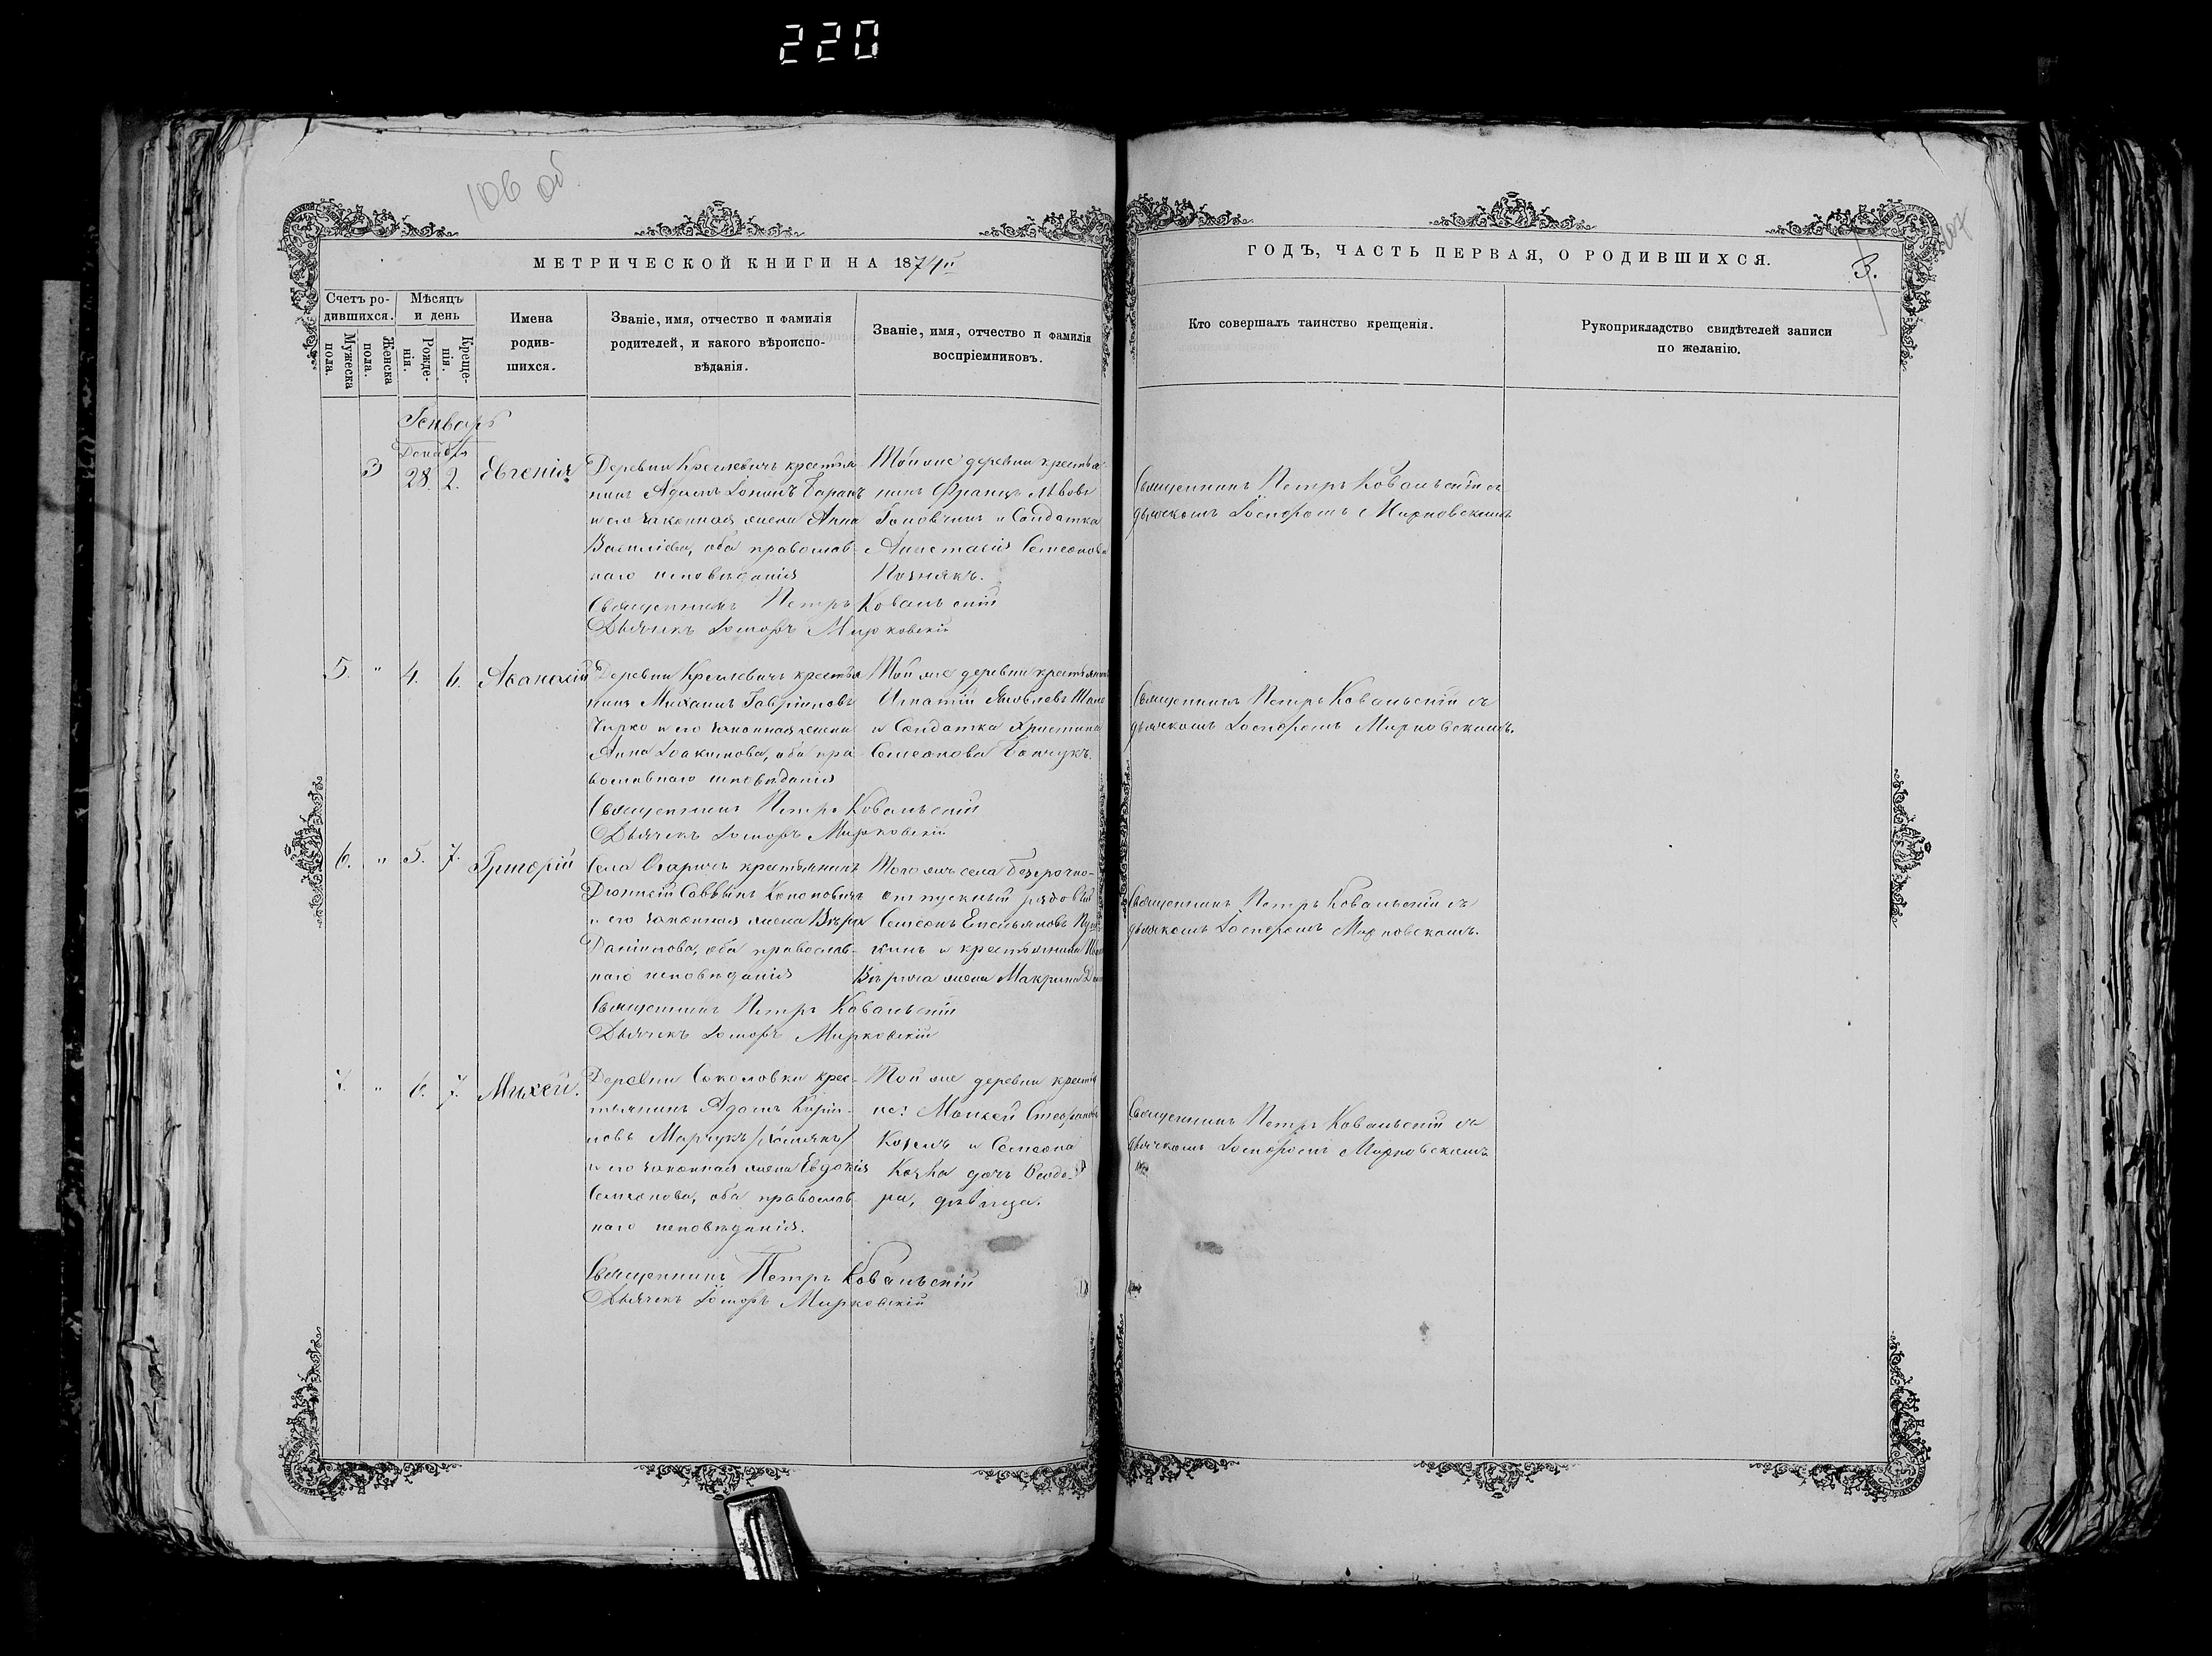 220
106 об
107
МЕТРИЧЕСКОЙ КНИГИ НА 1874й
ГОДЪ, ЧАСТЬ ПЕРВАЯ, О РОДИВШИХСЯ.
3.
Счетъ ро-
дившихся.
Мужеска
пола.
Женска
пола.
Мѣсяцъ
и день
Рожде-
нія.
Креще-
нія.
Имена
родив-
шихся.
Званіе, имя, отчество и фамилія
родителей, и какого вѣроиспо-
вѣданія.
Званіе, имя, отчество и фамилія
воспріемниковъ.
Кто совершалъ таинство крещенія.
Рукоприкладство свидѣтелей записи
по желанію.
Генварь
Декабря
3 28. 2. Евгенія
Деревни Кремневичъ крестья
нинъ Адамъ Баранъ
и его законная жена Анна
Василіева, оба православ-
наго исповѣданія
Священникъ Петръ Ковальскій
Дьячекъ Мирковскій
Той же деревни крестья-
нинъ Францъ Львовъ
и Солдатка
Анастасія Семеонова
Познякъ.
Священникъ Петръ Ковальскій съ
дьячкомъ Мирковскимъ
5 " 4. 6. Аѳанасій
Деревни крестья
нинъ Михаилъ Гавріиловъ
и его законная жена
Анна Іоакимова, оба пра
вославнаго исповѣданія
Священникъ Петръ Ковальскій
Дьячекъ Мирковскій
Той же деревни крестьянинъ
Игнатій Яковлевъ
и Солдатка Христина
Семеонова
Священникъ Петръ Ковальскій съ
дьячкомъ Мирковскимъ.
6. " 5. 7. Григорій
Села Огаричъ крестьянинъ
Діонисій Саввинъ Кононовичъ
и его законная жена Вѣра
Даніилова, оба православ-
наго исповѣданія
Священникъ Петръ Ковальскій
Дьячекъ Мирковскій
Того же села безсрочно-
отпускный рядовый
Семеонъ Емельяновъ
и крестьянина
жена Макрина
Священникъ Петръ Ковальскій съ
дьячкомъ Мирковскимъ.
7. " 6. 7. Михей.
Деревни Соколовки крес-
тьянинъ Адамъ Кирил-
ловъ Марчукъ
и его законная жена Евдокія
Семеонова, оба православ-
наго исповѣданія.
Священникъ Петръ Ковальскій
Дьячекъ Мирковскій
Той же деревни крестья
не: Моисей Стефановъ
Козелъ и Семеона
дочь Ѳеодо-
ра, дѣвица.
Священникъ Петръ Ковальскій съ
дьячкомъ Мирковскимъ